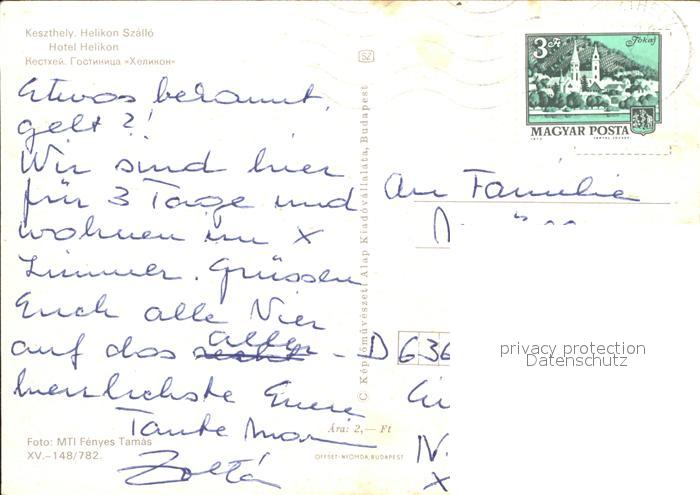 Keszthely. Helikon Szálló
Hotel Helikon
Кестхей. Гостиница «Хеликон»
SZ
3 Ft
Tokaj
MAGYAR POSTA
Etwas bekannt,
gelt?!
Wir sind hier
für 3 Tage und
wohnen im X
Zimmer. Grüssen
Euch alle Vier
auf das aller-
herzlichste Euere
Tante
Zoltá
An Familie
D 636
IV.
X
privacy protection
Datenschutz
© Képzőművészeti Alap Kiadóvállalata, Budapest
Ára: 2,— Ft
Foto: MTI Fényes Tamás
XV.–148/782.
OFFSET-NYOMDA, BUDAPEST